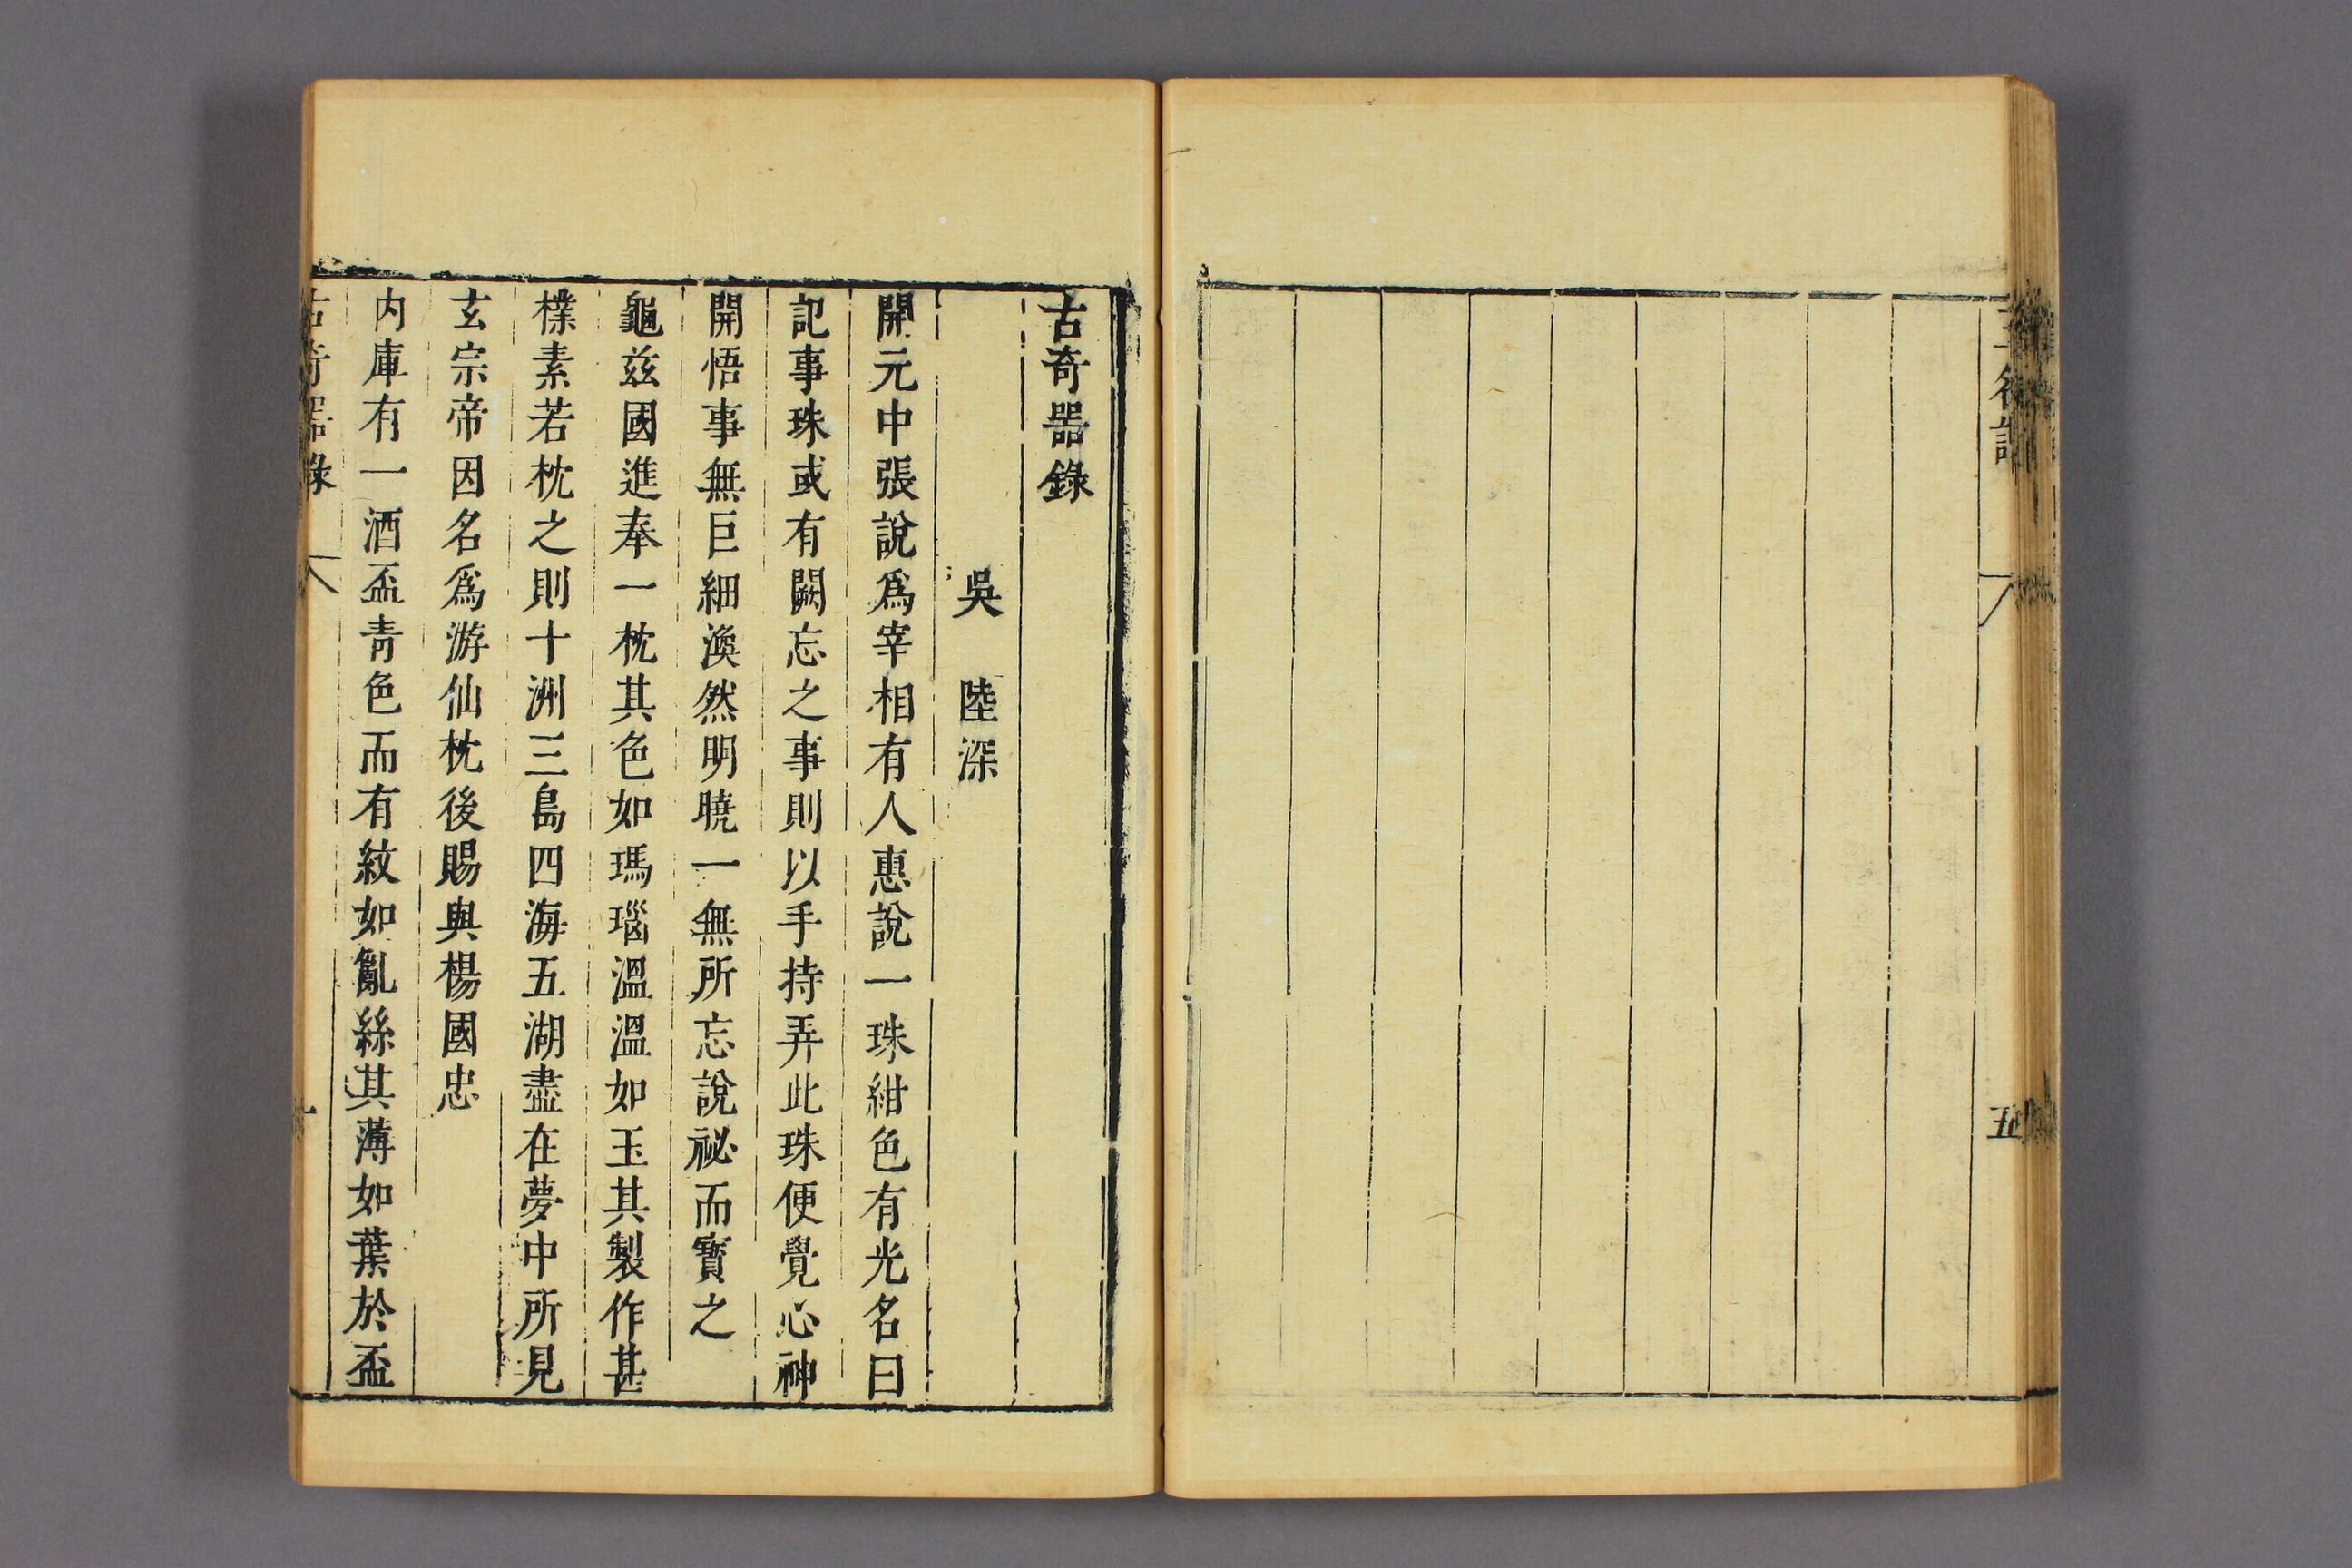 五
古奇器錄
吳 陸深
開元中張說爲宰相有人惠說一珠紺色有光名曰
記事珠或有闕忘之事則以手持弄此珠便覺心神
開悟事無巨細渙然明曉一無所忘說祕而寶之
龜兹國進奉一枕其色如瑪瑙溫溫如玉其製作甚
樸素若枕之則十洲三島四海五湖盡在夢中所見
玄宗帝因名爲游仙枕後賜與楊國忠
內庫有一酒盃青色而有紋如亂絲其薄如葉於盃
古奇器錄 一